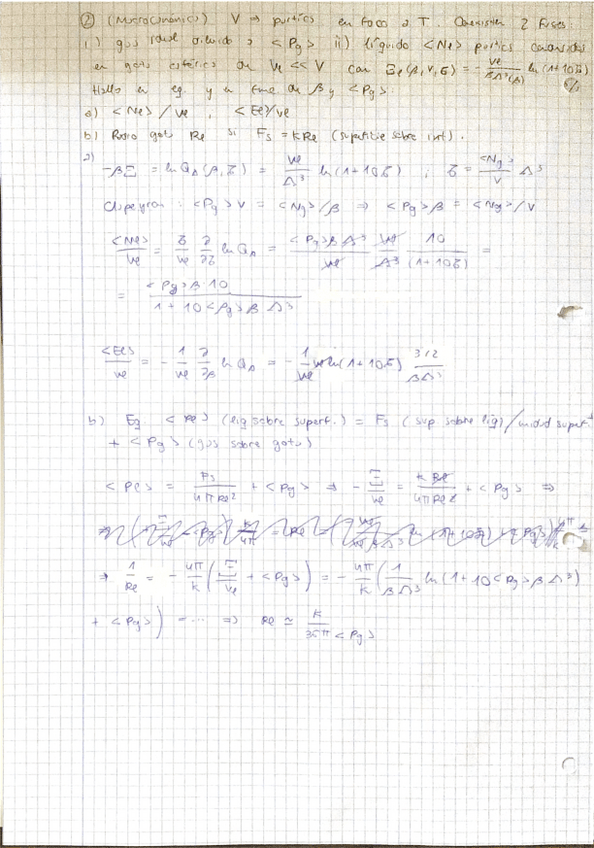 ② (Macrocanónico) V → partics en foco a T. Coexisten 2 fases:
i) gas ideal diluido a <Pg> ii) líquido <Ne> partics
en gota esférica de Ve << V con Ξe(β,V,z) = - Ve/(βΛ³(β)) ln(1+10z)
Halla en eq. y en de β y <Pg>:
a) <Ne>/Ve , <Ee>/Ve
b) Radio gota Re si Fs = kRe (superficie sobre int).
a)
-βΞ = ln QΛ(β,z) = Ve/Λ³ ln(1+10z) ; z = <Ng>/V Λ³
Clapeyron: <Pg>V = <Ng>/β ⇒ <Pg>β = <Ng>/V
<Ne>/Ve = z/Ve ∂/∂z ln QΛ = <Pg>βΛ³/Ve Ve/Λ³ 10/(1+10z) =
= <Pg>β·10/(1+10<Pg>βΛ³)
<Ee>/Ve = - 1/Ve ∂/∂β ln QΛ = - 1/Ve Ve ln(1+10z) 3/2/(βΛ³)
b) Eq. <Pe> (liq sobre superf.) = Fs (sup. sobre liq)/unidad superf.
+ <Pg> (gas sobre gota)
<Pe> = Fs/4πRe² + <Pg> ⇒ - Ξ/Ve = kRe/4πRe² + <Pg> ⇒
⇒ 1/Re = - 4π/k (Ξ/Ve + <Pg>) = - 4π/k (1/βΛ³ ln(1+10<Pg>βΛ³)
+ <Pg>) = ... ⇒ Re ≃ k/36π<Pg>